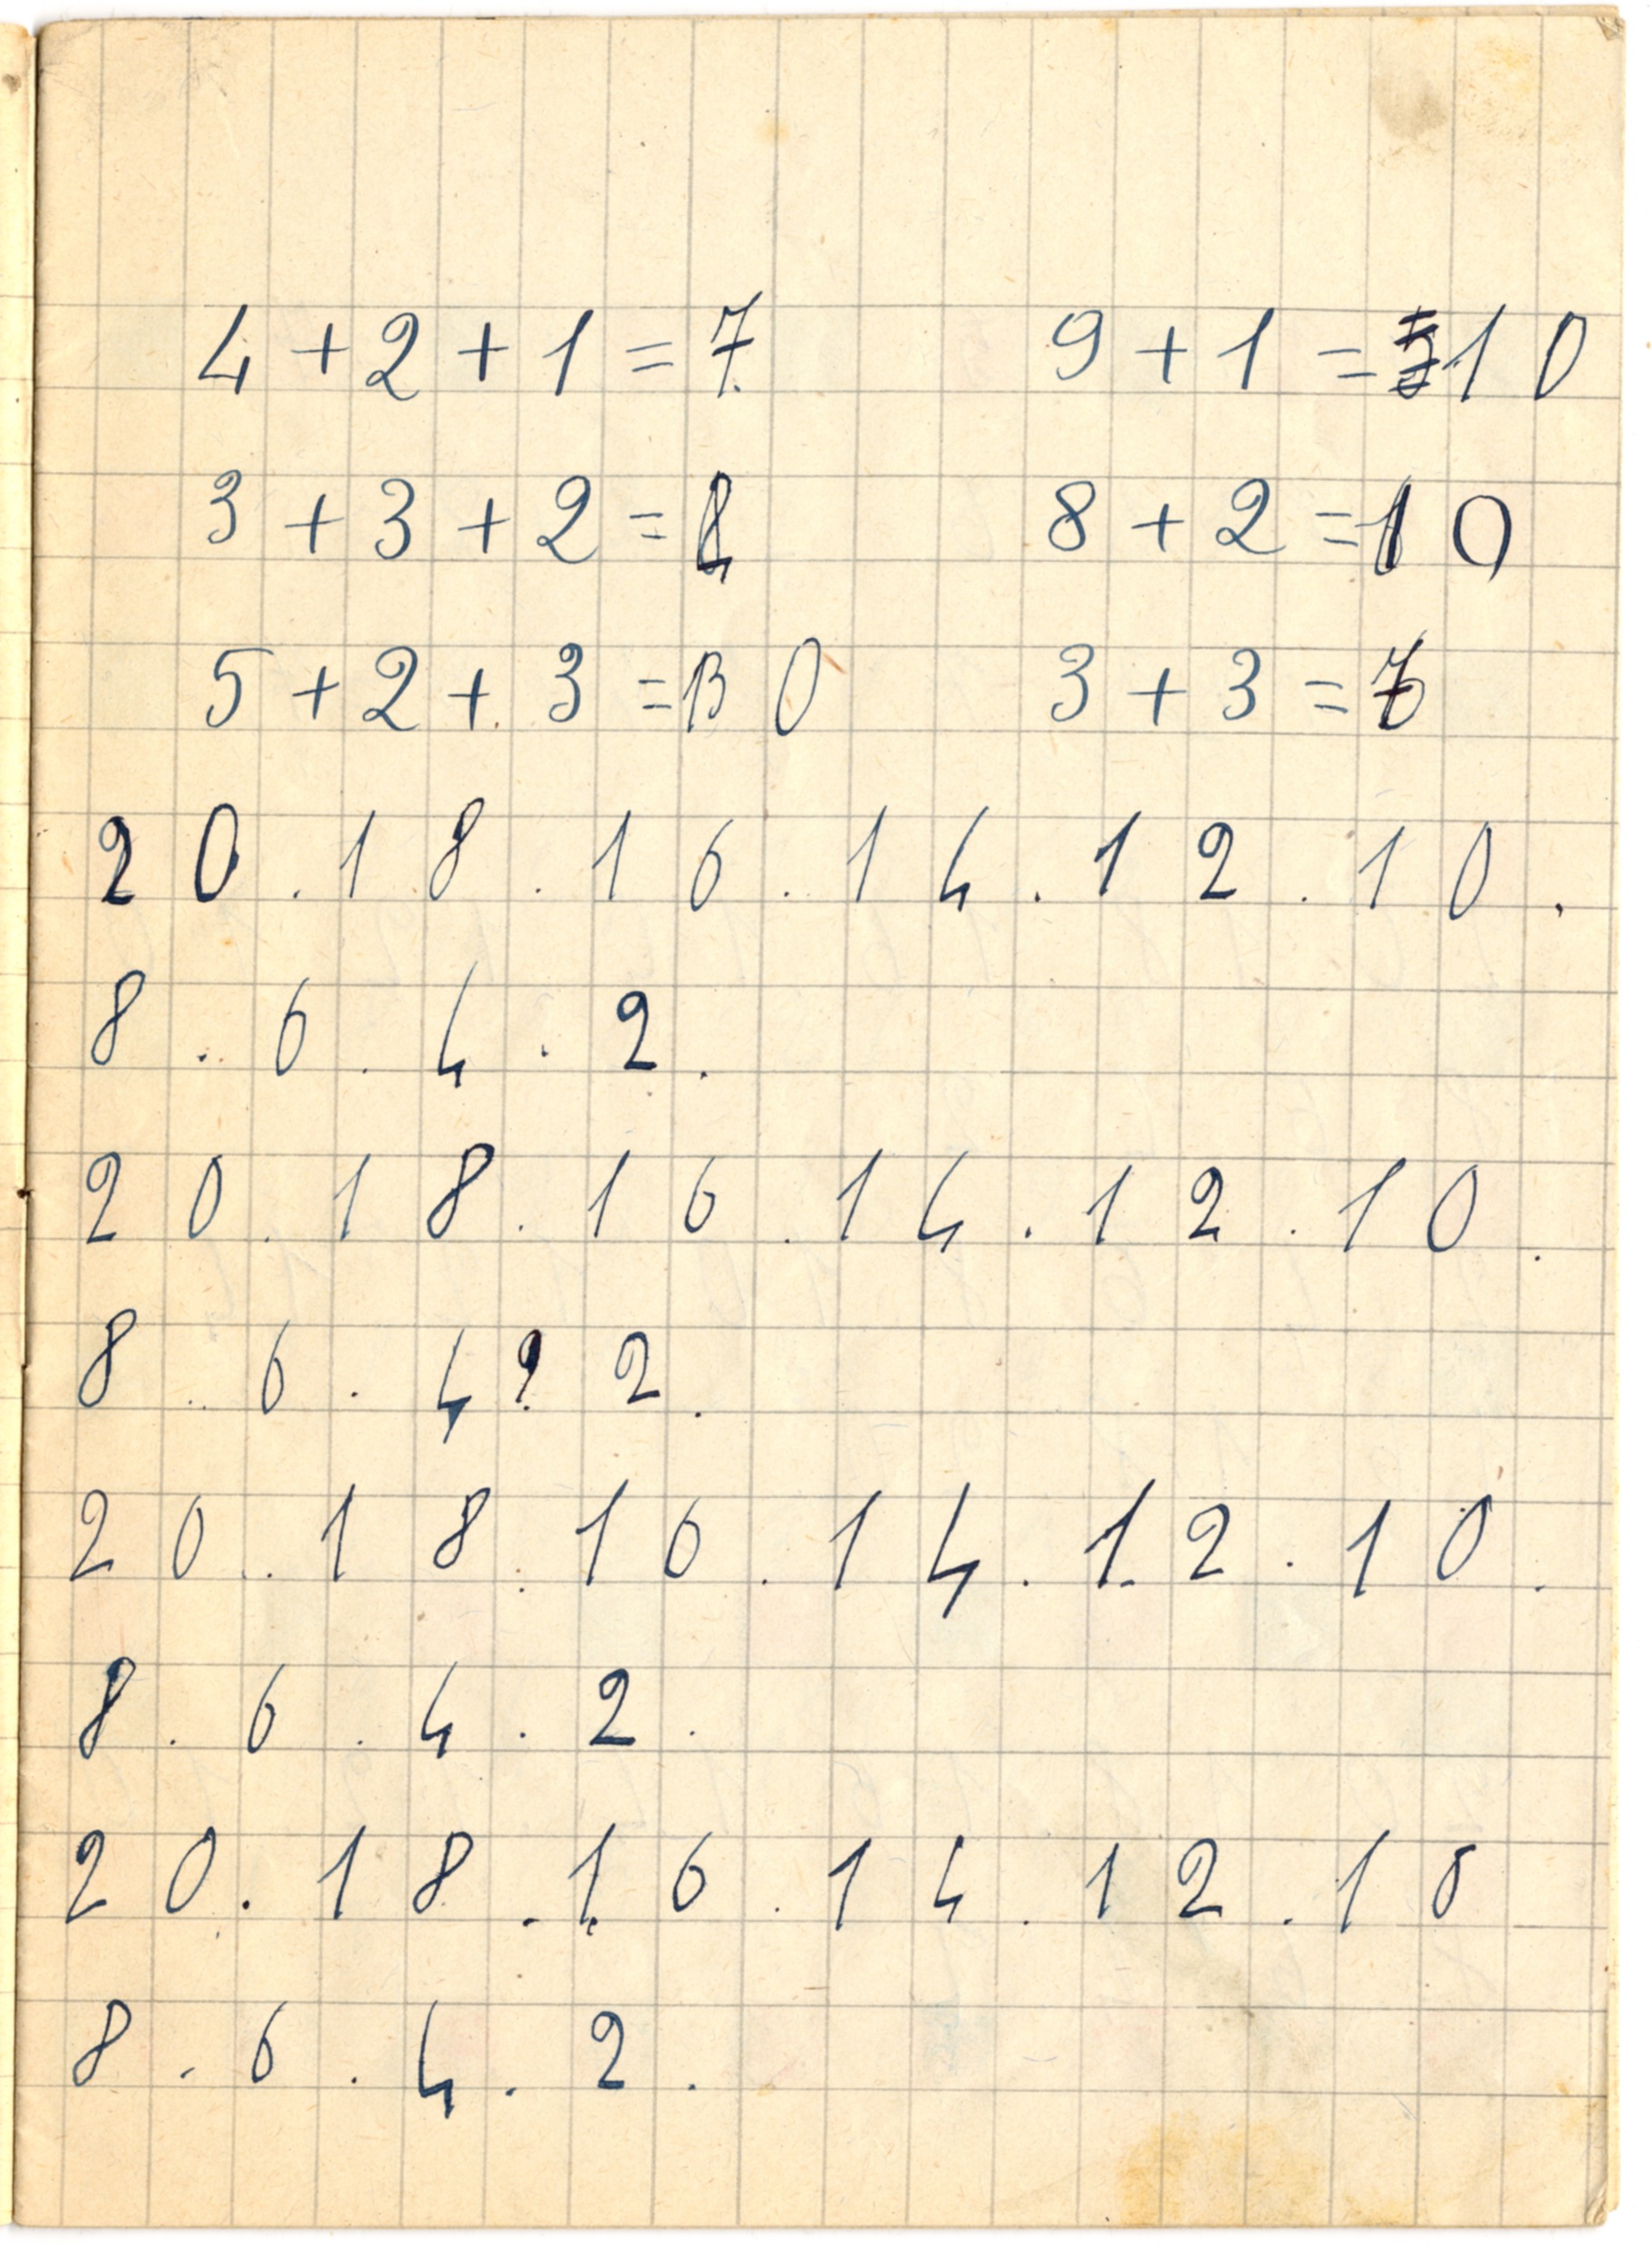 4 + 2 + 1 = 7 9 + 1 = 10
3 + 3 + 2 = 8 + 2 = 10
5 + 2 + 3 = 3 + 3 =
20 . 18 . 16 . 14 . 12 . 10 .
8 . 6 . 4 . 2 .
20 . 18 . 16 . 14 . 12 . 10 .
8 . 6 . 4 2 .
20 . 18 . 16 . 14 . 12 . 10 .
8 . 6 . 4 . 2 .
20 . 18 . 16 . 14 . 12 . 10
8 . 6 . 4 . 2 .